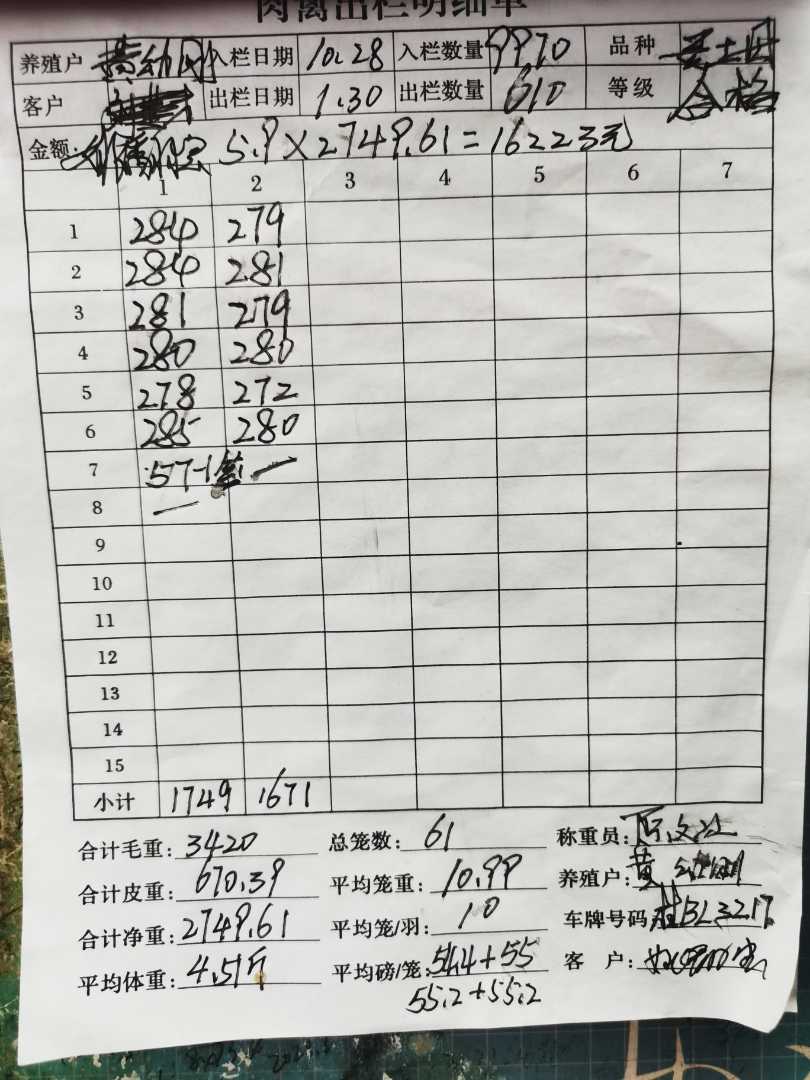 肉禽出栏明细单
养殖户 黄幼刚 入栏日期 10.28 入栏数量 9970 品种
客户 出栏日期 1.30 出栏数量 610 等级 合格
金额: 5.9×2749.61=16223元
1 2 3 4 5 6 7
1 284 279
2 284 281
3 281 279
4 280 280
5 278 272
6 285 280
7 57-1笼
8
9
10
11
12
13
14
15
小计 1749 1671
合计毛重: 3420 总笼数: 61 称重员:
合计皮重: 670.39 平均笼重: 10.99 养殖户: 黄
合计净重: 2749.61 平均笼/羽: 10 车牌号码: 桂BL3217
平均体重: 4.51斤 平均磅/笼: 54.4+55 客 户:
55.2+55.2